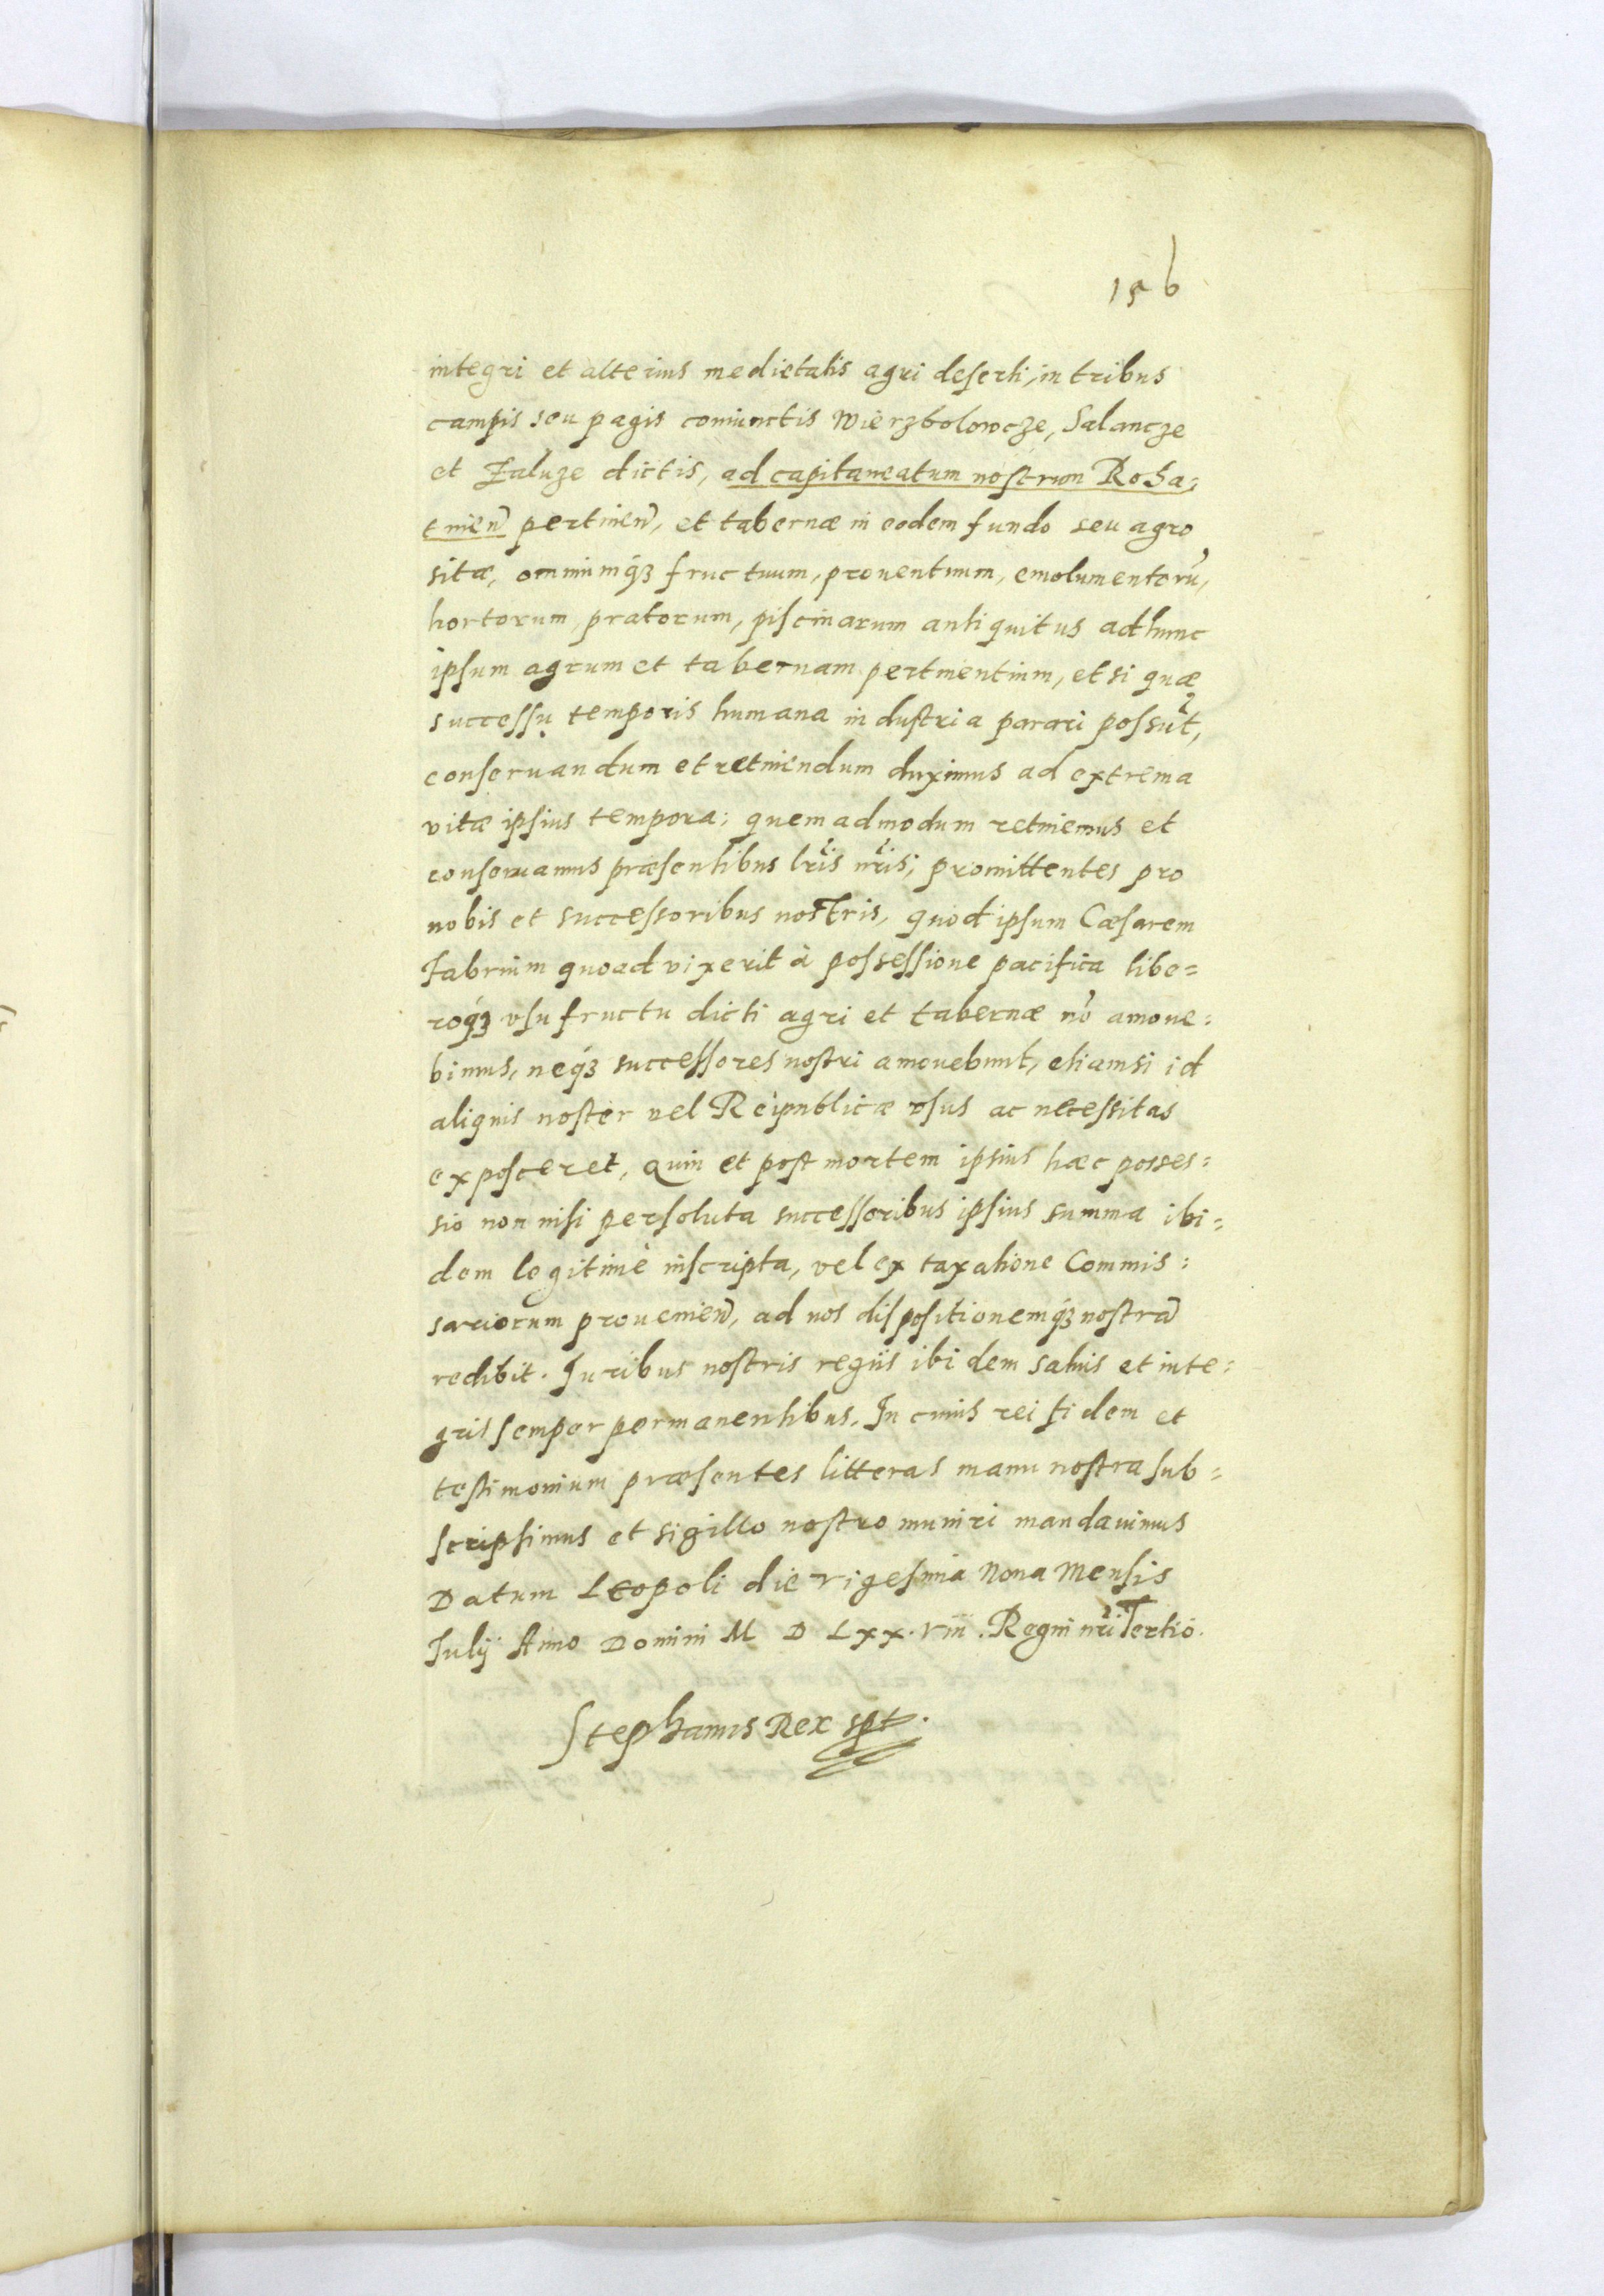 156
integri et alterius medietatis agri deserti, in tribus
campis seu pagis coniunctis Wierzbolowcze, Salancze
et Zaluze dictis, ad capitaneatum nostrum Roha=
tinen̄ pertinen̄, et tabernæ in eodem fundo seu agro
sitæ, omniumq́ꝫ fructuum, prouentuum, emolumentorū,
hortorum, pratorum, piscinarum antiquitus ad hunc
ipsum agrum et tabernam pertinentium, et si quæ
successu temporis humana industria parari possūt,
conseruandum et retinendum duximus ad extrema
vitæ ipsius tempora; quemadmodum retinemus et
conseruamus præsentibus lr̄is nr̄is; promittentes pro
nobis et successoribus nostris, quod ipsum Cæsarem
Fabrium quoad vixerit à possessione pacifica libe=
roq́ꝫ vsufructu dicti agri et tabernæ nō amoue=
bimus, neq́ꝫ successores nostri amouebunt, etiamsi id
aliquis noster vel Reipublicæ vsus ac necessitas
exposceret, Quin et post mortem ipsius hæc posses=
sio non nisi persoluta successoribus ipsius summa ibi=
dem legitimè inscripta, vel ex taxatione Commis=
sariorum prouenien̄, ad nos dispositionemq́ꝫ nostrā
redibit. Iuribus nostris regiis ibidem saluis et inte=
gris semper permanentibus. In cuius rei fidem et
testimonium præsentes litteras manu nostra sub=
scripsimus et sigillo nostro muniri mandauimus
Datum Leopoli die vigesima Nona Mensis
Iulij Anno Domini M D Lxx.viii. Regni nr̄i Tertio.
Stephanus Rex spt.